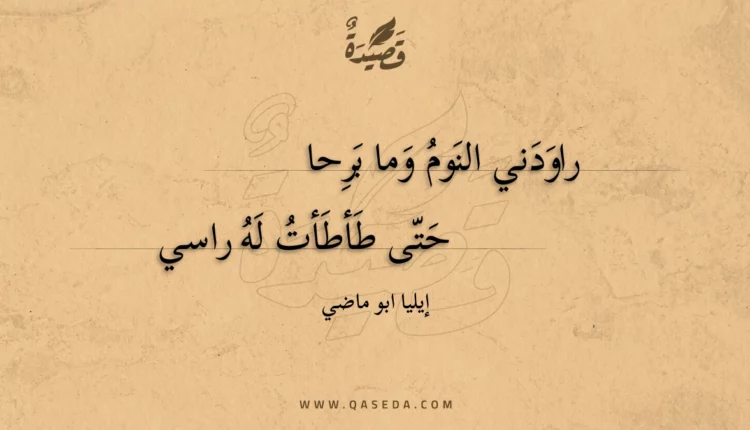 قَصِيدَةٌ
راوَدَني النَومُ وَما بَرِحا
حَتّى طَأطَأتُ لَهُ راسي
إيليا ابو ماضي
WWW.QASEDA.COM